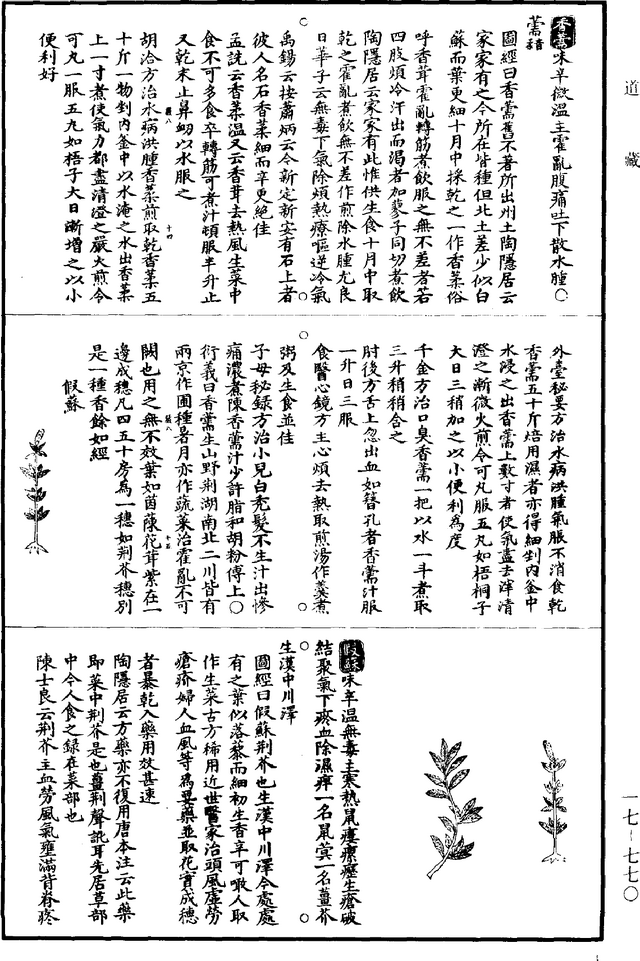 道藏
香薷味辛微溫主霍亂腹痛吐下散水腫○
薷音
圖經曰香薷舊不著所出州土陶隱居云
家家有之今所在皆種但北土差少似白
蘇而葉更細十月中採乾之一作香葇俗
呼香茸霍亂轉筋煮飲服之無不差者若
四肢煩冷汗出而渴者加蓼子同切煮飲
陶隱居云家家有此惟供生食十月中取
乾之霍亂煮飲無不差作煎除水腫尤良
日華子云無毒下氣除煩熱療嘔逆冷氣
禹錫云按蕭炳云今新定新安有石上者
彼人名石香葇細而辛更絕佳
孟詵云香葇溫又云香茸去熱風生菜中
食不可多食卒轉筋可煮汁頓服半升止
又乾末止鼻衂以水服之
胡洽方治水病洪腫香葇煎取乾香葇五
十斤一物剉內釜中以水淹之水出香葇
上一寸煮使氣力都盡清澄之嚴火煎令
可丸一服五丸如梧子大日漸增之以小
便利好
外臺秘要方治水病洪腫氣脹不消食乾
香薷五十斤焙用濕者亦得細剉內釜中
水浸之出香薷上數寸者使氣盡去滓清
澄之漸微火煎令可丸服五丸如梧桐子
大日三稍加之以小便利為度
千金方治口臭香薷一把以水一斗煮取
三升稍稍含之
肘後方舌上忽出血如簪孔者香薷汁服
一升日三服
食醫心鏡方主心煩去熱取煎湯作羹煮
粥及生食並佳
子母秘錄方治小兒白禿髮不生汁出慘
痛濃煮陳香薷汁少許脂和胡粉傅上○
衍義曰香薷生山野荊湖南北二川皆有
兩京作圃種暑月亦作蔬菜治霍亂不可
闕也用之無不效葉如茵蔯花茸紫在一
邊成穗凡四五十房為一穗如荊芥穗別
是一種香餘如經
假蘇
假蘇味辛溫無毒主寒熱鼠瘻瘰癧生瘡破
結聚氣下瘀血除濕痺一名鼠蓂一名薑芥
生漢中川澤
圖經曰假蘇荊芥也生漢中川澤今處處
有之葉似落藜而細初生香辛可噉人取
作生菜古方稀用近世醫家治頭風虛勞
瘡疥婦人血風等為要藥並取花實成穗
者暴乾入藥用效甚速
陶隱居云方藥亦不復用唐本注云此藥
即菜中荊芥是也薑荊聲訛耳先居草部
中今人食之錄在菜部也
陳士良云荊芥主血勞風氣壅滿背脊疼
一七-七七〇